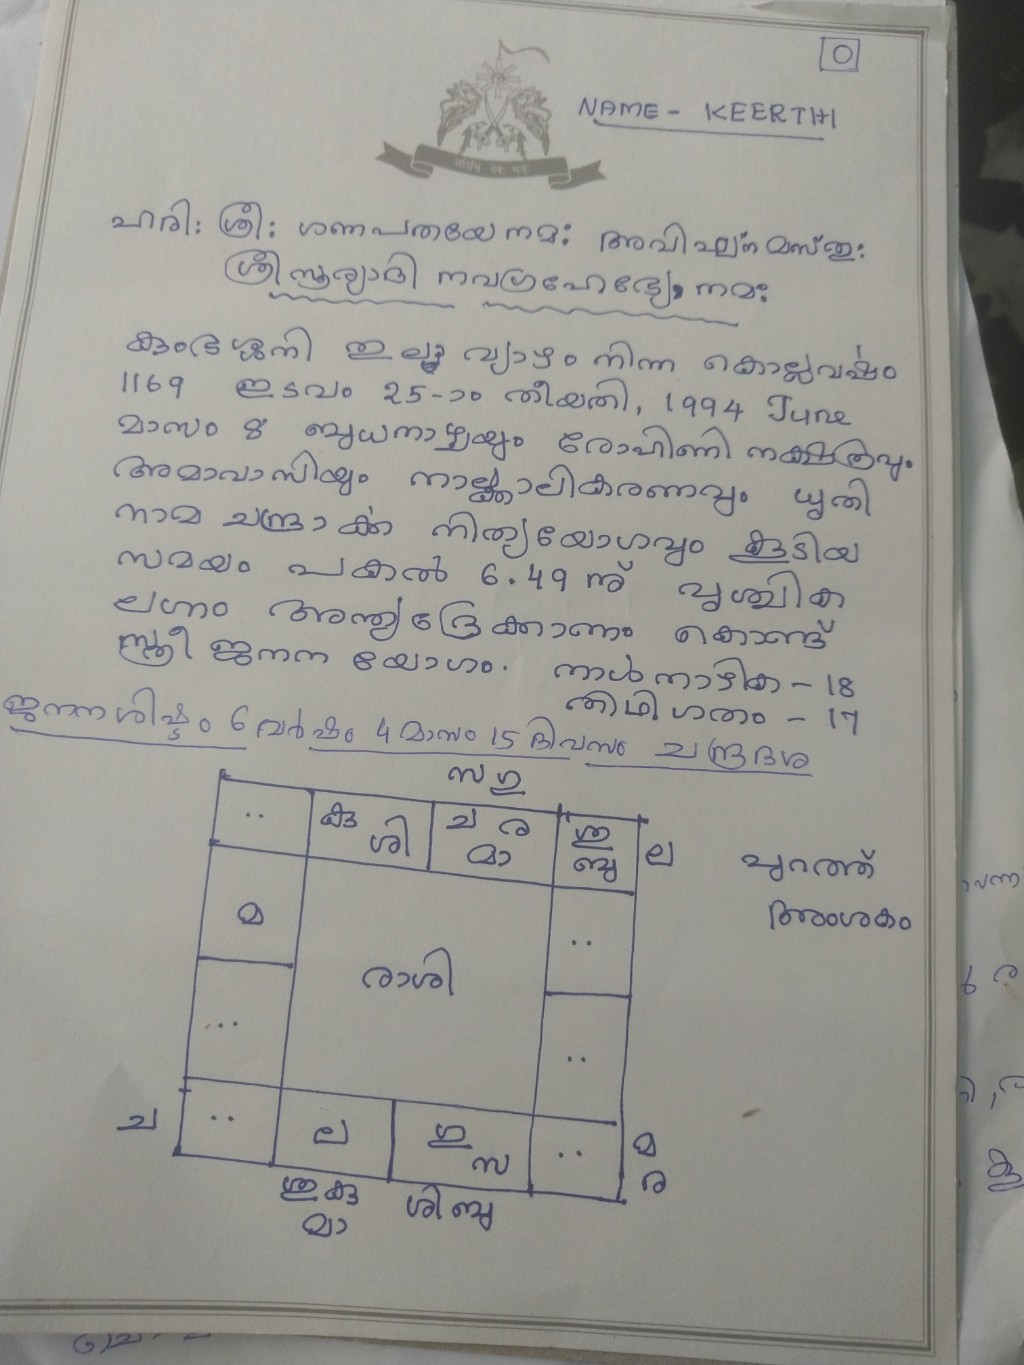 0
NAME - KEERTHI
ഹരി: ശ്രീ: ഗണപതയേ നമ: അവിഘ്നമസ്തു:
ശ്രീ സൂര്യാദി നവഗ്രഹേഭ്യോ നമ:
കുംഭശ്ശനി തുല്ലാ വ്യാഴം നിന്ന കൊല്ലവർഷം
1169 ഇടവം 25-ാം തീയതി, 1994 June
മാസം 8 ബുധനാഴ്ചയും രോഹിണി നക്ഷത്രവും
അമാവാസിയും നാല്ക്കാലികരണവും ധൃതി
നാമ ചന്ദ്രാർക്ക നിത്യയോഗവും കൂടിയ
സമയം പകൽ 6.49 ന് വൃശ്ചിക
ലഗ്നം അന്ത്യദ്രേക്കാണം കൊണ്ട്
സ്ത്രീ ജനന യോഗം. നാൾ നാഴിക - 18
തിഥി ഗതം - 17
ജനനശിഷ്ടം 6 വർഷം 4 മാസം 15 ദിവസം ചന്ദ്രദശ
സ ഗു
കു ശി ച ര മാ ശു ബു ല
പുറത്ത് അംശകം
മ
രാശി
ച ല ഗു സ മ ര
ശു കു മാ ശി ബു